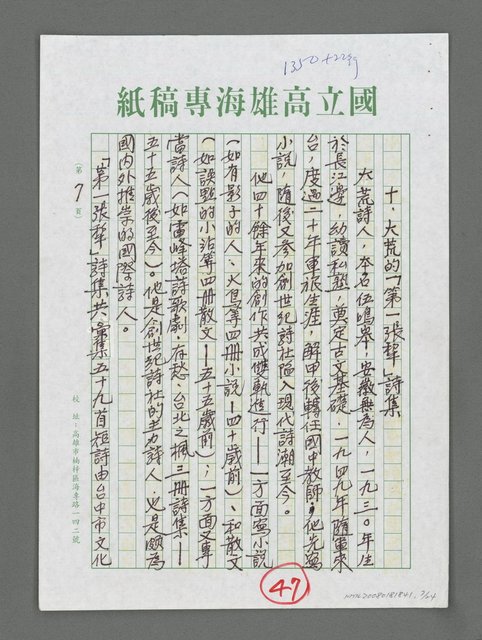 1350+229
國立高雄海專稿紙
十、大荒的「第一張犁」詩集
大荒詩人,本名伍鳴皋,安徽無為人,一九三○年生
於長江邊,幼讀私塾,奠定古文基礎,一九四九年隨軍來
台,度過二十年軍旅生涯,解甲後轉任國中教師,他先寫
小說,隨後又參加創世紀詩社陷入現代詩潮至今。
他四十餘年來的創作共成雙軌進行——一方面寫小說
(如有影子的人、火鳥等四冊小說—四十歲前)、和散文
(如談點的小站等四冊散文—五十五歲前);一方面又專
當詩人(如雷峰塔詩歌劇、存愁、台北之楓三冊詩集—
五十五歲後至今)。他是創世紀詩社的主力詩人,也是頗為
國內外推崇的國際詩人。
「第一張犁」詩集共彙集五十九首短詩由台中市文化
(第7頁)
校址:高雄市楠梓區海專路一四二號
47
NMTL20080181841 7/24